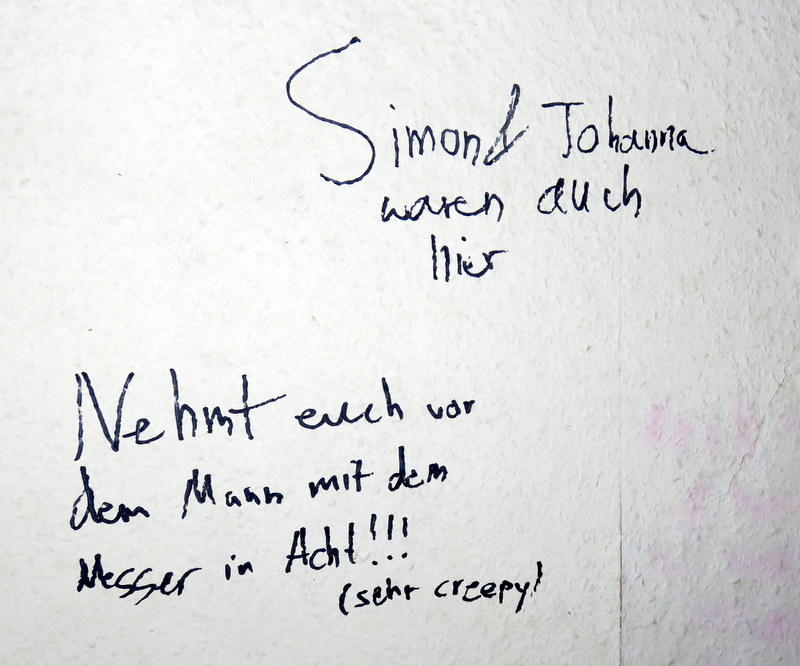 Simon & Johanna
waren auch
hier
Nehmt euch vor
dem Mann mit dem
Messer in Acht!!!
(sehr creepy)